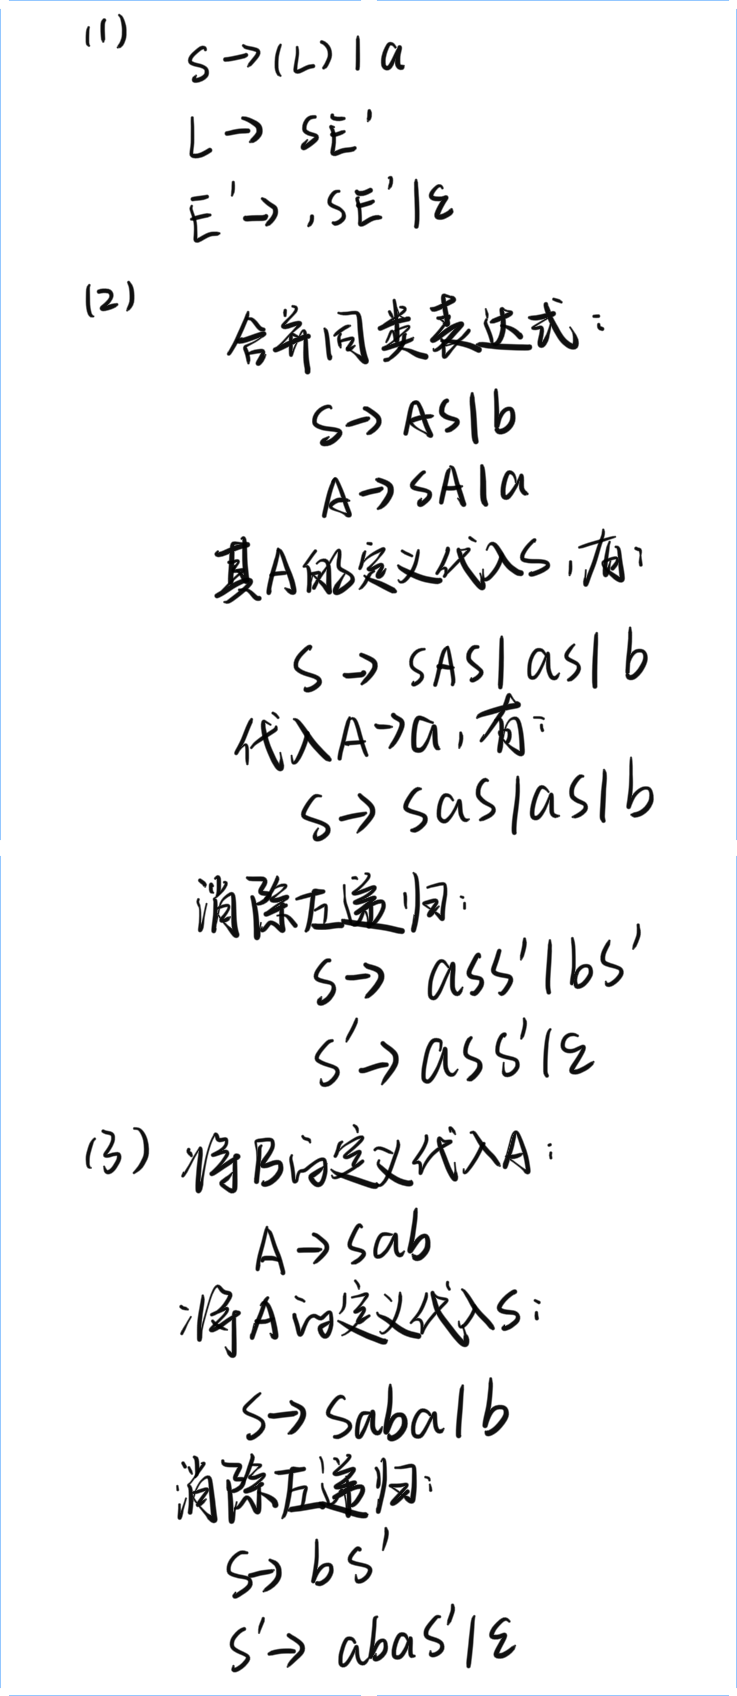 (1)
S→(L)|a
L→ SE'
E'→ ,SE'|ε
(2)
合并同类表达式:
S→ AS|b
A→SA|a
其A的定义代入S,有:
S → SAS|aS|b
代入A→a,有:
S→ SaS|aS|b
消除左递归:
S→ aSS'|bS'
S'→ aSS'|ε
(3) 将B的定义代入A:
A→Sab
将A的定义代入S:
S→ Saba|b
消除左递归:
S→ bS'
S'→ abaS'|ε